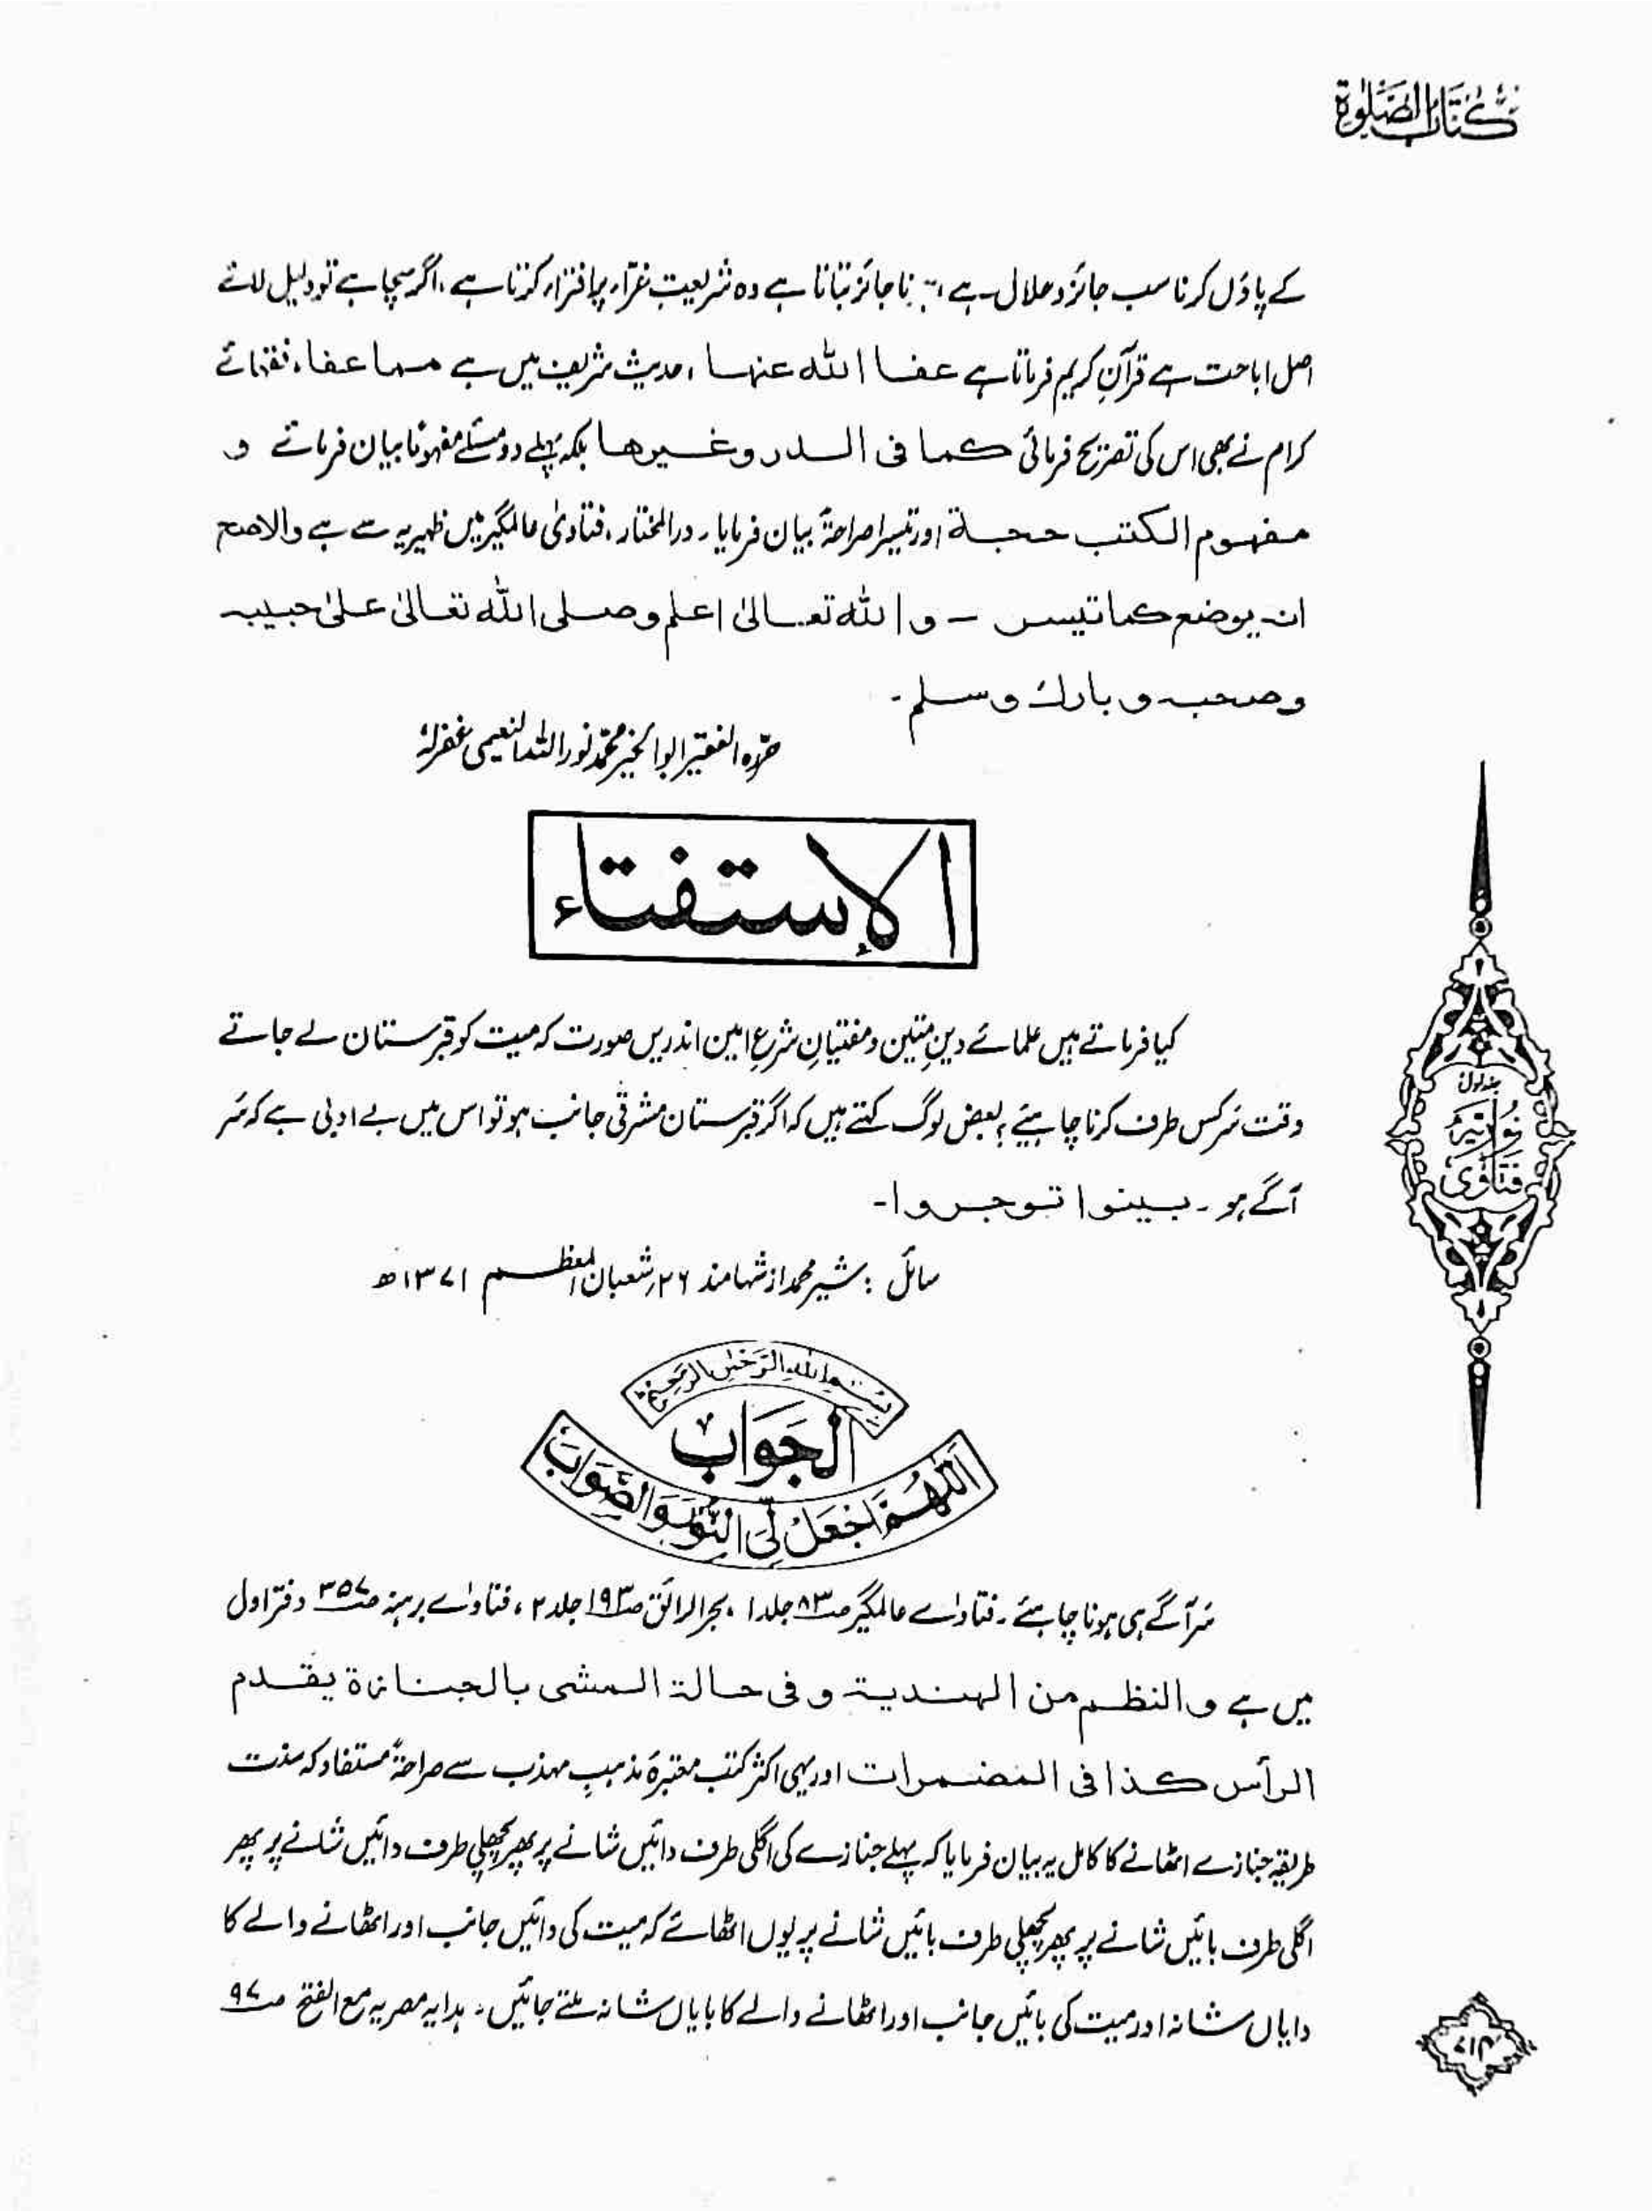 كتاب الصلوة
کے پاؤں کرنا سب جائز و حلال ہے، ناجائز بتاتا ہے وہ شریعت غرّاء پر افتراء کرتا ہے، اگر سچا ہے تو دلیل لائے
اصل اباحت ہے قرآنِ کریم فرماتا ہے عفا الله عنها، حدیث شریف میں ہے مما عفا، فقہائے
کرام نے بھی اس کی تصریح فرمائی كما فى الدر وغيرها بلکہ پہلے دو مسئلے مفہومًا بیان فرماتے و
مفهوم الكتب حجة اور تیسرا صراحۃً بیان فرمایا۔ در المختار، فتاویٰ عالمگیر میں ظہیریہ سے ہے والاصح
ان يوضع كما تيسر – و الله تعالىٰ اعلم وصلى الله تعالىٰ علىٰ حبيبه
وصحبه و بارك وسلم۔
حرّرہ الفقیر ابوالخیر محمد نور اللہ النعیمی غفرلہٗ
الإستفتاء
کیا فرماتے ہیں علمائے دینِ متین و مفتیانِ شرع امین اندریں صورت کہ میت کو قبرستان لے جاتے
وقت سَر کس طرف کرنا چاہیئے؟ بعض لوگ کہتے ہیں کہ اگر قبرستان مشرقی جانب ہو تو اس میں بے ادبی ہے کہ سَر
آگے ہو۔ بينوا توجروا۔
سائل : شیر محمد از شہامند ۲۶؍ شعبان المعظم ۱۳۷۱ھ
بسم الله الرحمن الرحيم
الجواب
اللهم اجعل لى النور والصواب
سَر آگے ہی ہونا چاہئے۔ فتاوائے عالمگیر صـ۸۳ جلد ۱، بحر الرائق صـ۱۹۳ جلد ۲، فتاوائے برہنہ صـ۳۵۷ دفتر اول
میں ہے والنظم من الهندية و فى حالة المشى بالجنازة يقدم
الرأس كذا فى المضمرات اور یہی اکثر کتب معتبرۂ مذہبِ مہذب سے صراحۃً مستفاد کہ سنت
طریقہ جنازے اٹھانے کا کامل یہ بیان فرمایا کہ پہلے جنازے کی اگلی طرف دائیں شانے پر پھر پچھلی طرف دائیں شانے پر پھر
اگلی طرف بائیں شانے پر پھر پچھلی طرف بائیں شانے پر یوں اٹھائے کہ میت کی دائیں جانب اور اٹھانے والے کا
دایاں شانہ اور میت کی بائیں جانب اور اٹھانے والے کا بایاں شانہ ملتے جائیں۔ ہدایہ مصریہ مع الفتح صـ۹۷
جلد اول
نوریہ
فتاویٰ
۷۱۴